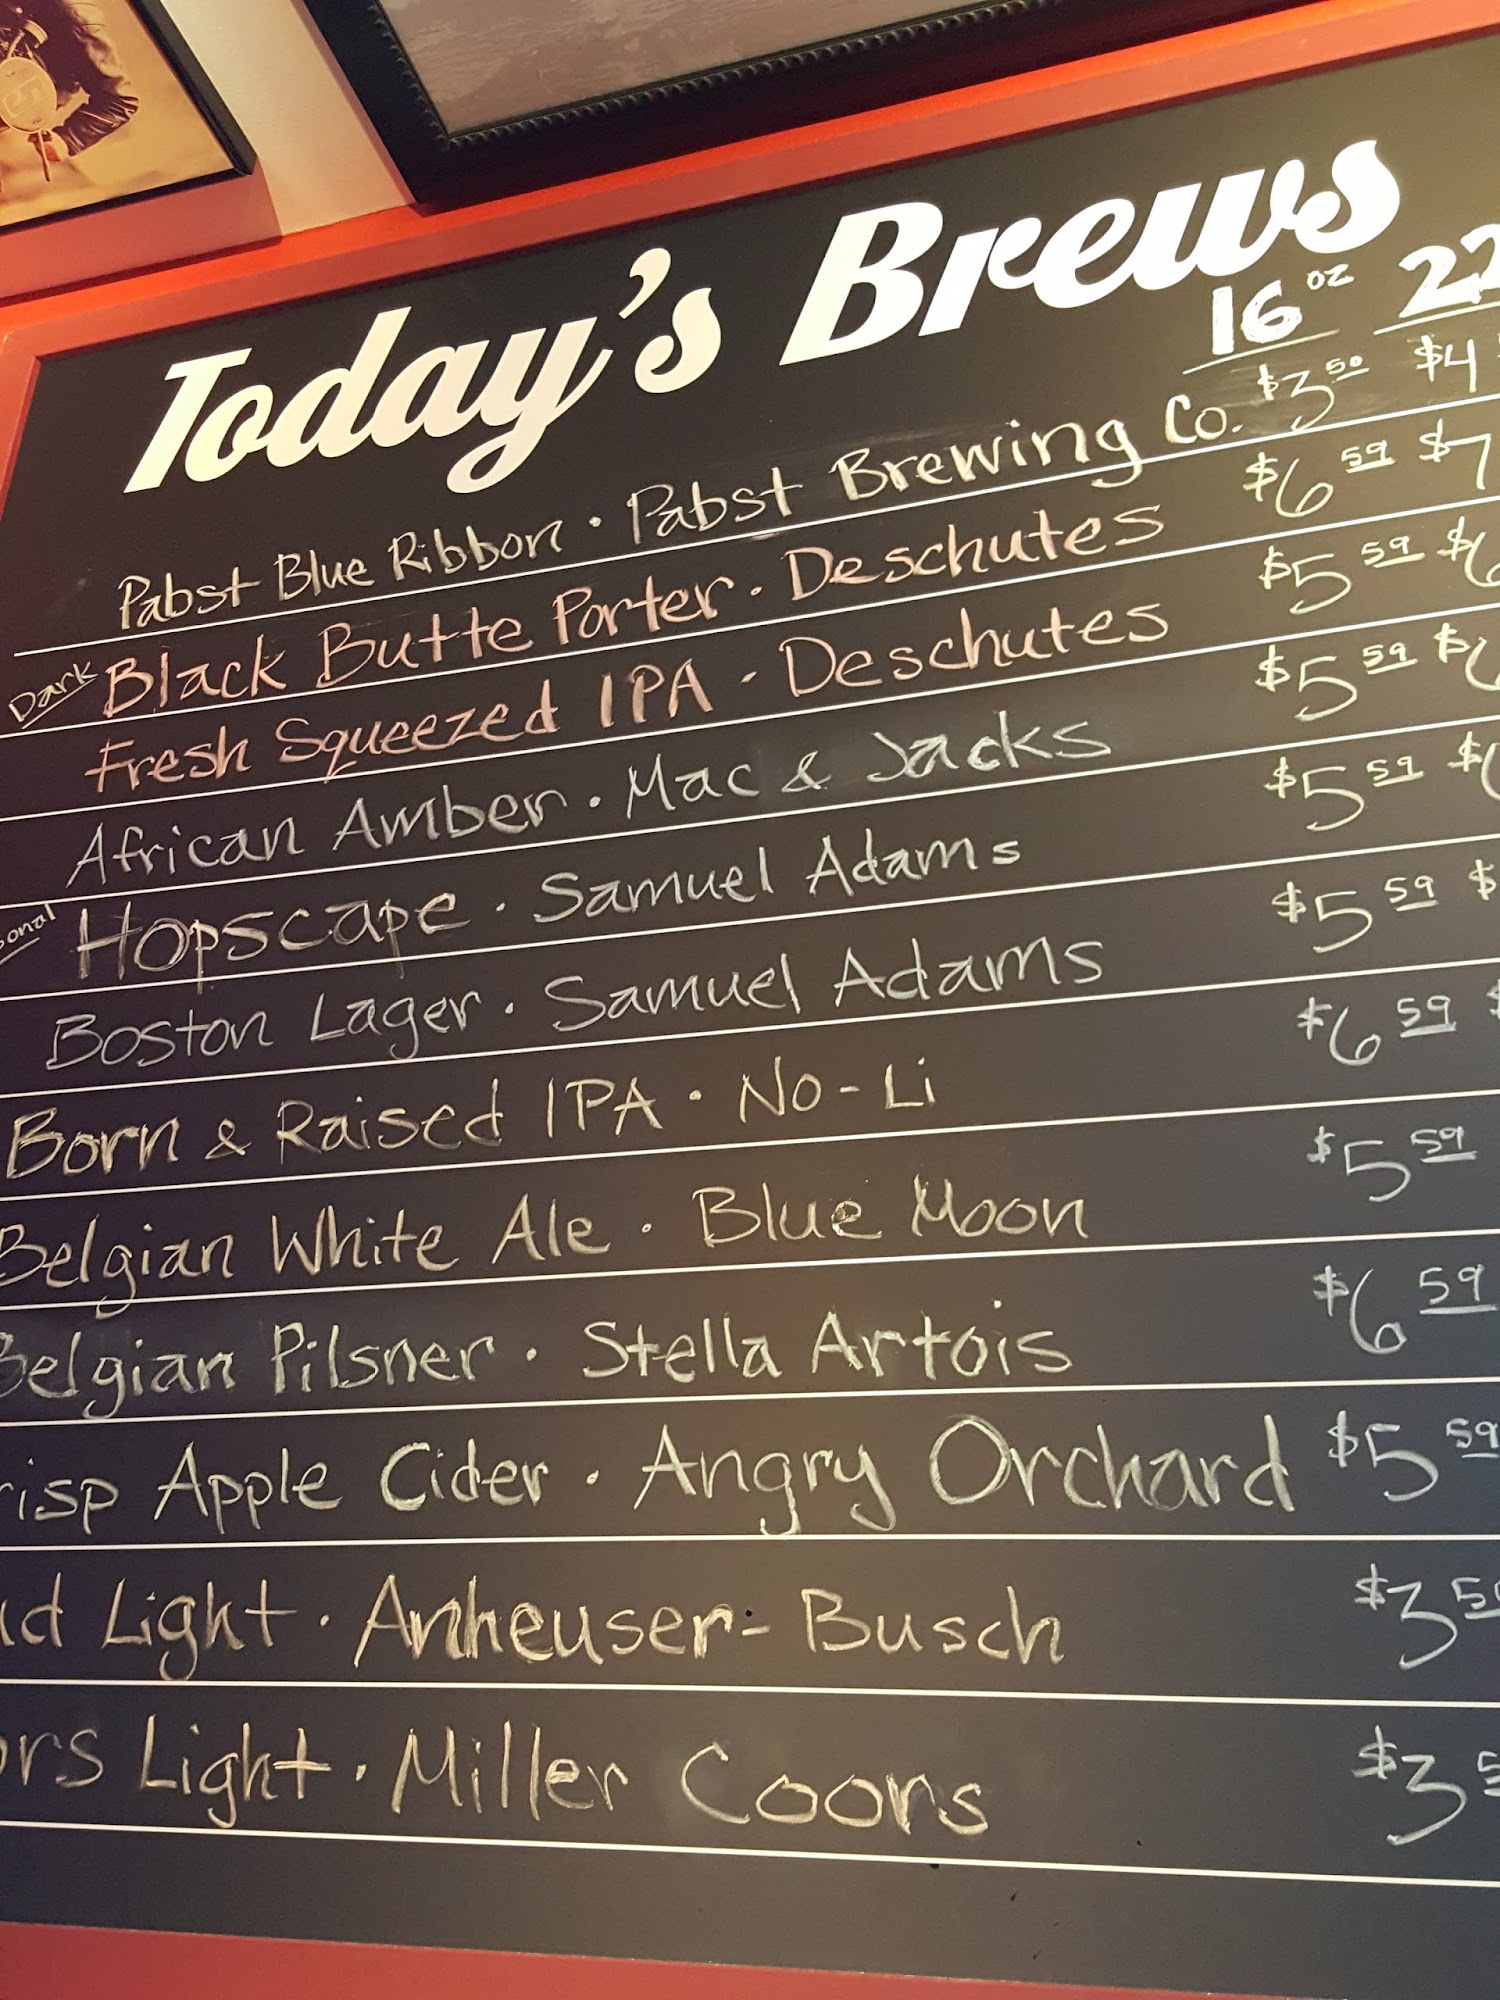 Today's Brews
16 oz 22
Pabst Blue Ribbon · Pabst Brewing Co. $3.50 $4
Dark Black Butte Porter · Deschutes $6.59 $7
Fresh Squeezed IPA · Deschutes $5.59 $6
African Amber · Mac & Jacks $5.59 $6
sonal Hopscape · Samuel Adams $5.59 $6
Boston Lager · Samuel Adams $5.59 $
Born & Raised IPA · No-Li $6.59 $
Belgian White Ale · Blue Moon $5.59
Belgian Pilsner · Stella Artois $6.59
risp Apple Cider · Angry Orchard $5.59
ud Light · Anheuser-Busch $3.50
ors Light · Miller Coors $3.5